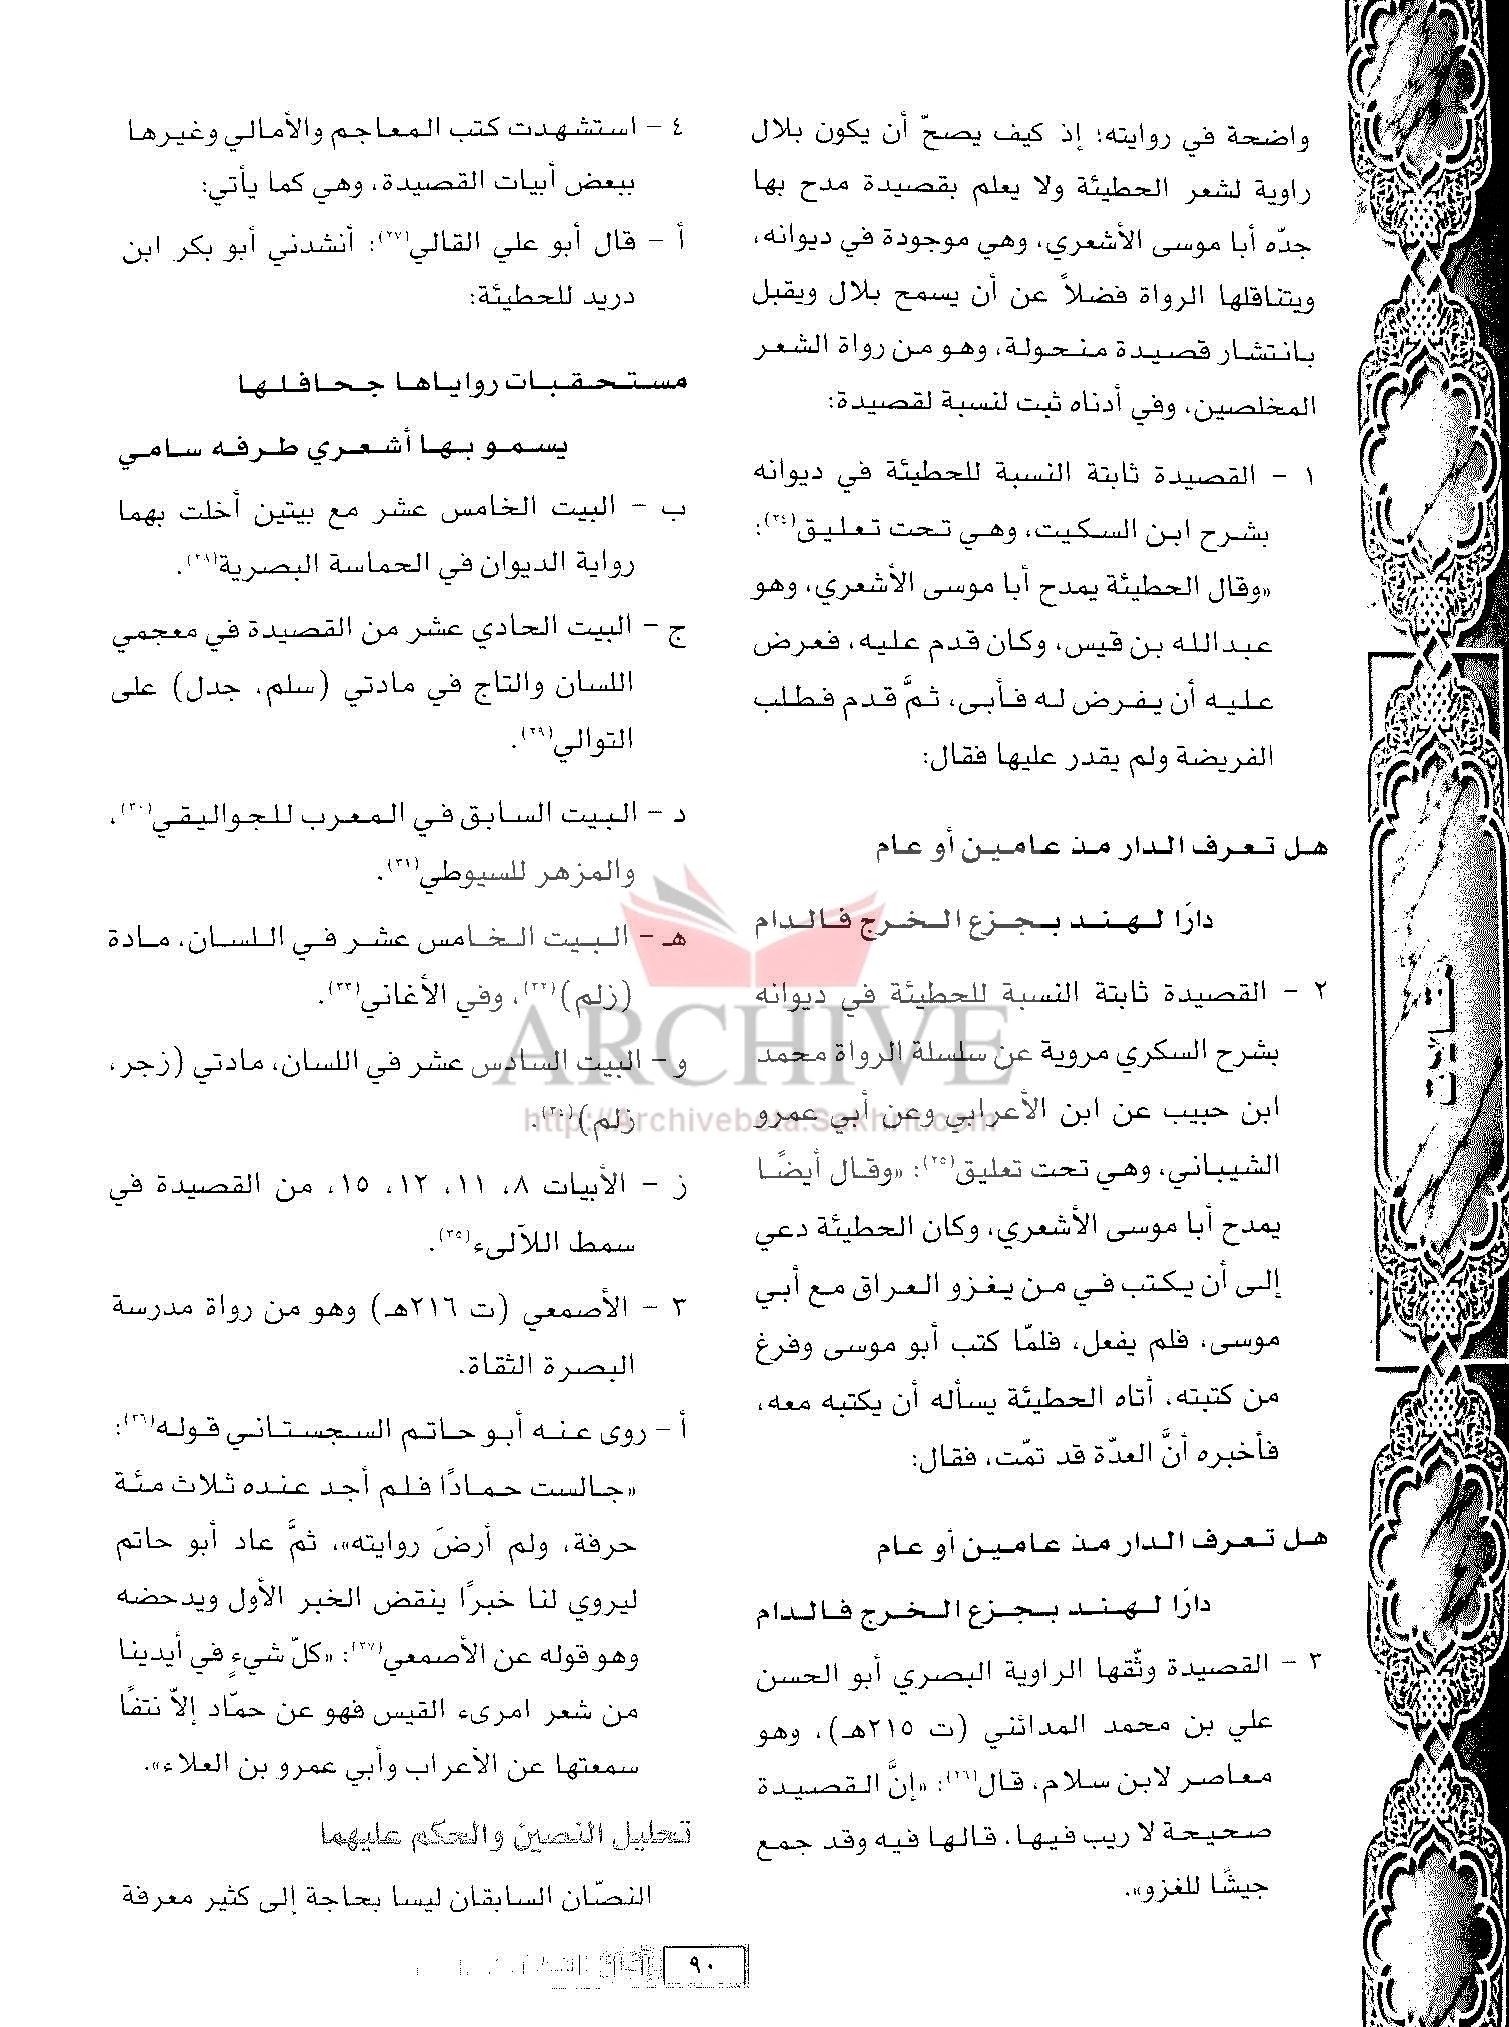 واضحة في روايته؛ إذ كيف يصحّ أن يكون بلال
راوية لشعر الحطيئة ولا يعلم بقصيدة مدح بها
جدّه أبا موسى الأشعري، وهي موجودة في ديوانه،
ويتناقلها الرواة فضلاً عن أن يسمح بلال ويقبل
بانتشار قصيدة منحولة، وهو من رواة الشعر
المخلصين، وفي أدناه ثبت لنسبة لقصيدة:
١ - القصيدة ثابتة النسبة للحطيئة في ديوانه
بشرح ابن السكيت، وهي تحت تعليق(٢٤):
«وقال الحطيئة يمدح أبا موسى الأشعري، وهو
عبدالله بن قيس، وكان قدم عليه، فعرض
عليه أن يفرض له فأبى، ثمَّ قدم فطلب
الفريضة ولم يقدر عليها فقال:
هل تعرف الدار مذ عامين أو عام
دارًا لهند بجزع الخرج فالدام
٢ - القصيدة ثابتة النسبة للحطيئة في ديوانه
بشرح السكري مروية عن سلسلة الرواة محمد
ابن حبيب عن ابن الأعرابي وعن أبي عمرو
الشيباني، وهي تحت تعليق(٢٥): «وقال أيضًا
يمدح أبا موسى الأشعري، وكان الحطيئة دعي
إلى أن يكتب في من يغزو العراق مع أبي
موسى، فلم يفعل، فلمّا كتب أبو موسى وفرغ
من كتبته، أتاه الحطيئة يسأله أن يكتبه معه،
فأخبره أنَّ العدّة قد تمّت، فقال:
هل تعرف الدار مذ عامين أو عام
دارًا لهند بجزع الخرج فالدام
٣ - القصيدة وثّقها الراوية البصري أبو الحسن
علي بن محمد المدائني (ت ٢١٥هـ)، وهو
معاصر لابن سلام، قال(٢٦): «إنَّ القصيدة
صحيحة لا ريب فيها، قالها فيه وقد جمع
جيشًا للغزو».
٤ - استشهدت كتب المعاجم والأمالي وغيرها
ببعض أبيات القصيدة، وهي كما يأتي:
أ - قال أبو علي القالي(٢٧): أنشدني أبو بكر ابن
دريد للحطيئة:
مستحقبات رواياها جحافلها
يسمو بها أشعري طرفه سامي
ب - البيت الخامس عشر مع بيتين أخلت بهما
رواية الديوان في الحماسة البصرية(٢٨).
ج - البيت الحادي عشر من القصيدة في معجمي
اللسان والتاج في مادتي (سلم، جدل) على
التوالي(٢٩).
د - البيت السابق في المعرب للجواليقي(٣٠)،
والمزهر للسيوطي(٣١).
هـ - البيت الخامس عشر في اللسان، مادة
(زلم)(٣٢)، وفي الأغاني(٣٣).
و - البيت السادس عشر في اللسان، مادتي (زجر،
زلم)(٣٤).
ز - الأبيات ٨، ١١، ١٢، ١٥، من القصيدة في
سمط اللآلىء(٣٥).
٣ - الأصمعي (ت ٢١٦هـ) وهو من رواة مدرسة
البصرة الثقاة.
أ - روى عنه أبو حاتم السجستاني قوله(٣٦):
«جالست حمادًا فلم أجد عنده ثلاث مئة
حرفة، ولم أرضَ روايته»، ثمَّ عاد أبو حاتم
ليروي لنا خبرًا ينقض الخبر الأول ويدحضه
وهو قوله عن الأصمعي(٣٧): «كلّ شيءٍ في أيدينا
من شعر امرىء القيس فهو عن حمّاد إلاّ نتفًا
سمعتها عن الأعراب وأبي عمرو بن العلاء».
تحليل النصين والحكم عليهما
النصّان السابقان ليسا بحاجة إلى كثير معرفة
٩٠
مقالات
ARCHIVE
http://Archivebeta.Sakhrit.com